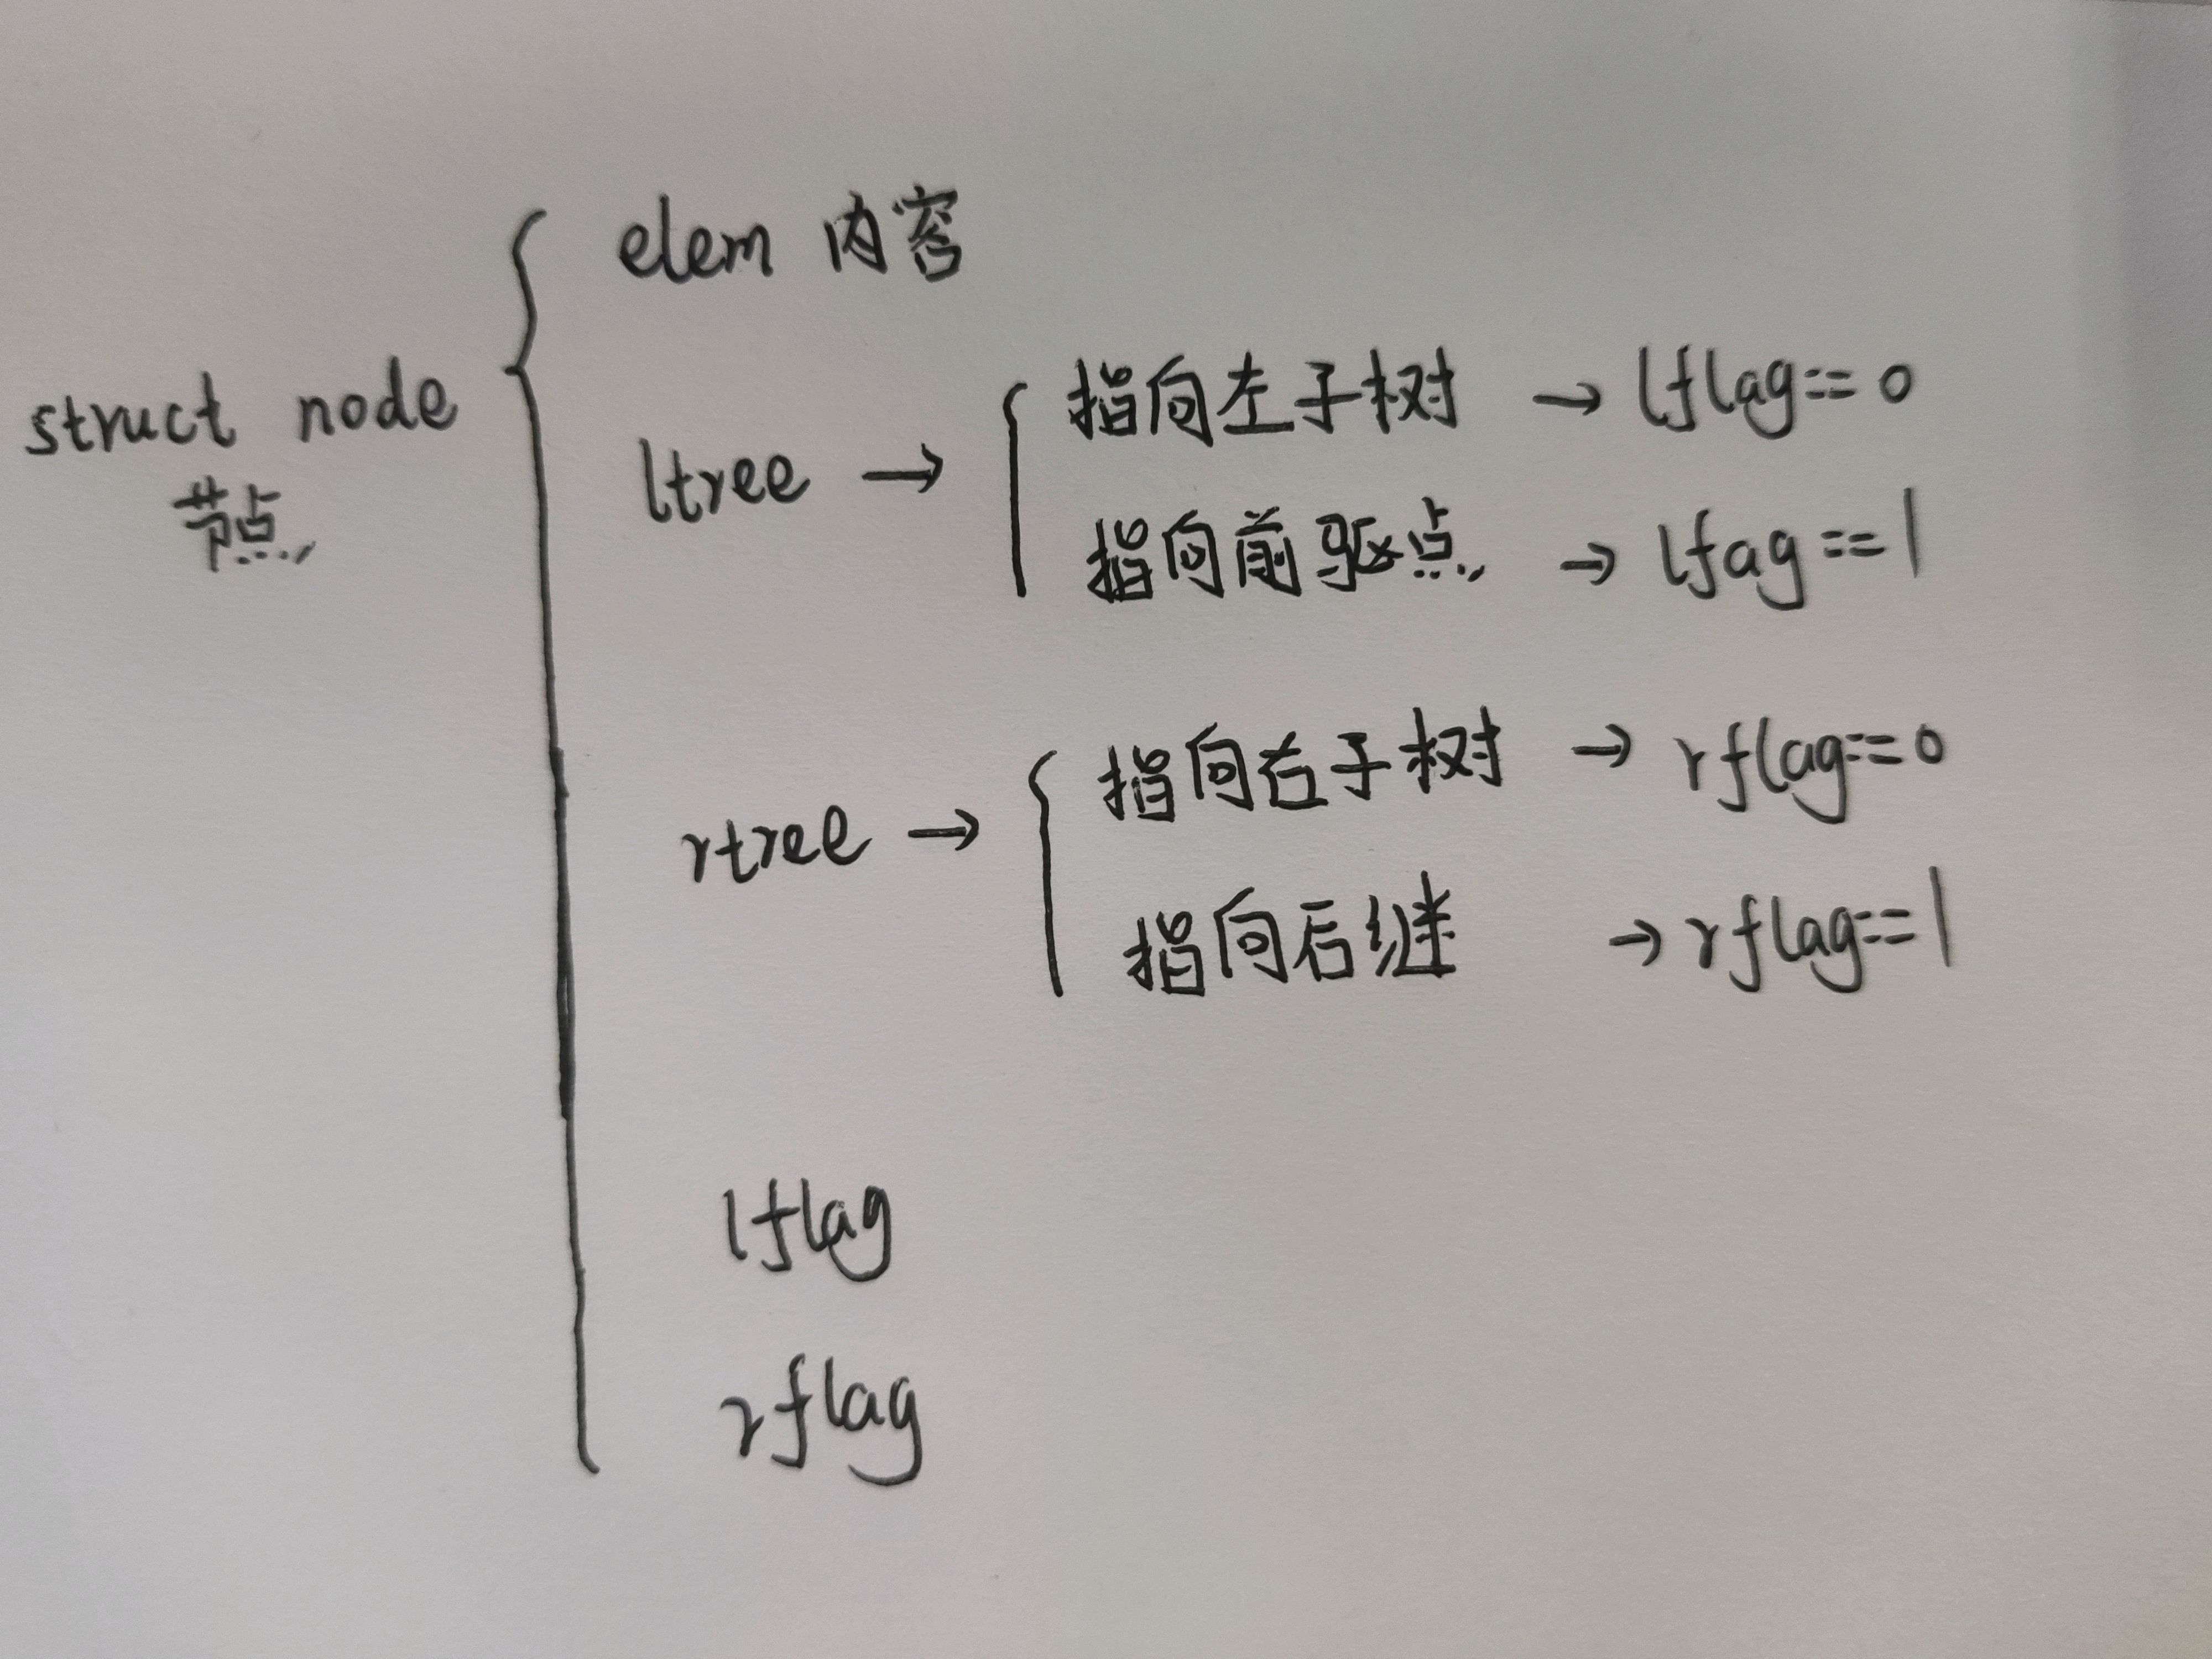 elem 内容
struct node
节点
ltree → 指向左子树 → lflag==0
指向前驱点 → lfag==1
rtree → 指向右子树 → rflag==0
指向后继 → rflag==1
lflag
rflag